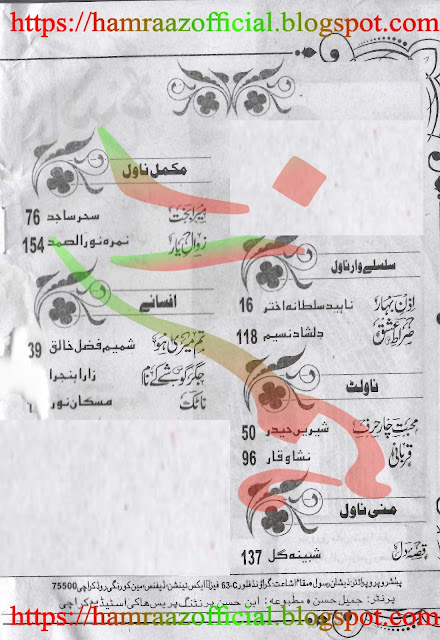 https://hamraazofficial.blogspot.com/
سلسلے وار ناول
اذنِ بہار ناہید سلطانہ اختر 16
صراطِ عشق دلشاد نسیم 118
ناولٹ
محبت چار حرف شیریں حیدر 50
قربانی نشا وقار 96
منی ناول
قصہ دل شبینہ گل 137
مکمل ناول
ہیرا بخت سحر ساجد 76
زوالِ یار نمرہ نور الصمد 154
افسانے
تم میری ہو شمیم فضل خالق 39
جگر گوشے کے نام زارا
ناٹک مسکان نور
پبلشر و پروپرائٹر: ذیشان رسول مقام اشاعت: گراؤنڈ فلور C-63 فیز II ایکس ٹینشن، ڈیفنس مین کورنگی روڈ کراچی 75500
پرنٹر: جمیل حسن مطبوعہ: ابن حسن پرنٹنگ پریس ہاکی اسٹیڈیم کراچی
https://hamraazofficial.blogspot.com/